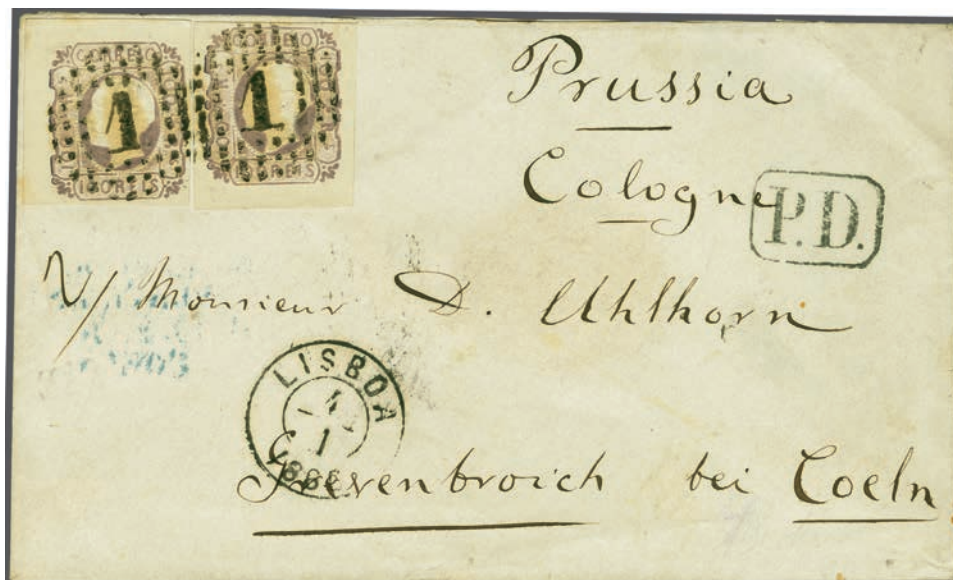 CORREIO CORREIO
1 1
100 REIS 100 REIS
Prussia
Cologne
P.D.
Monsieur D. Uhlhorn
LISBOA
4
1
1866
Grevenbroich bei Coeln